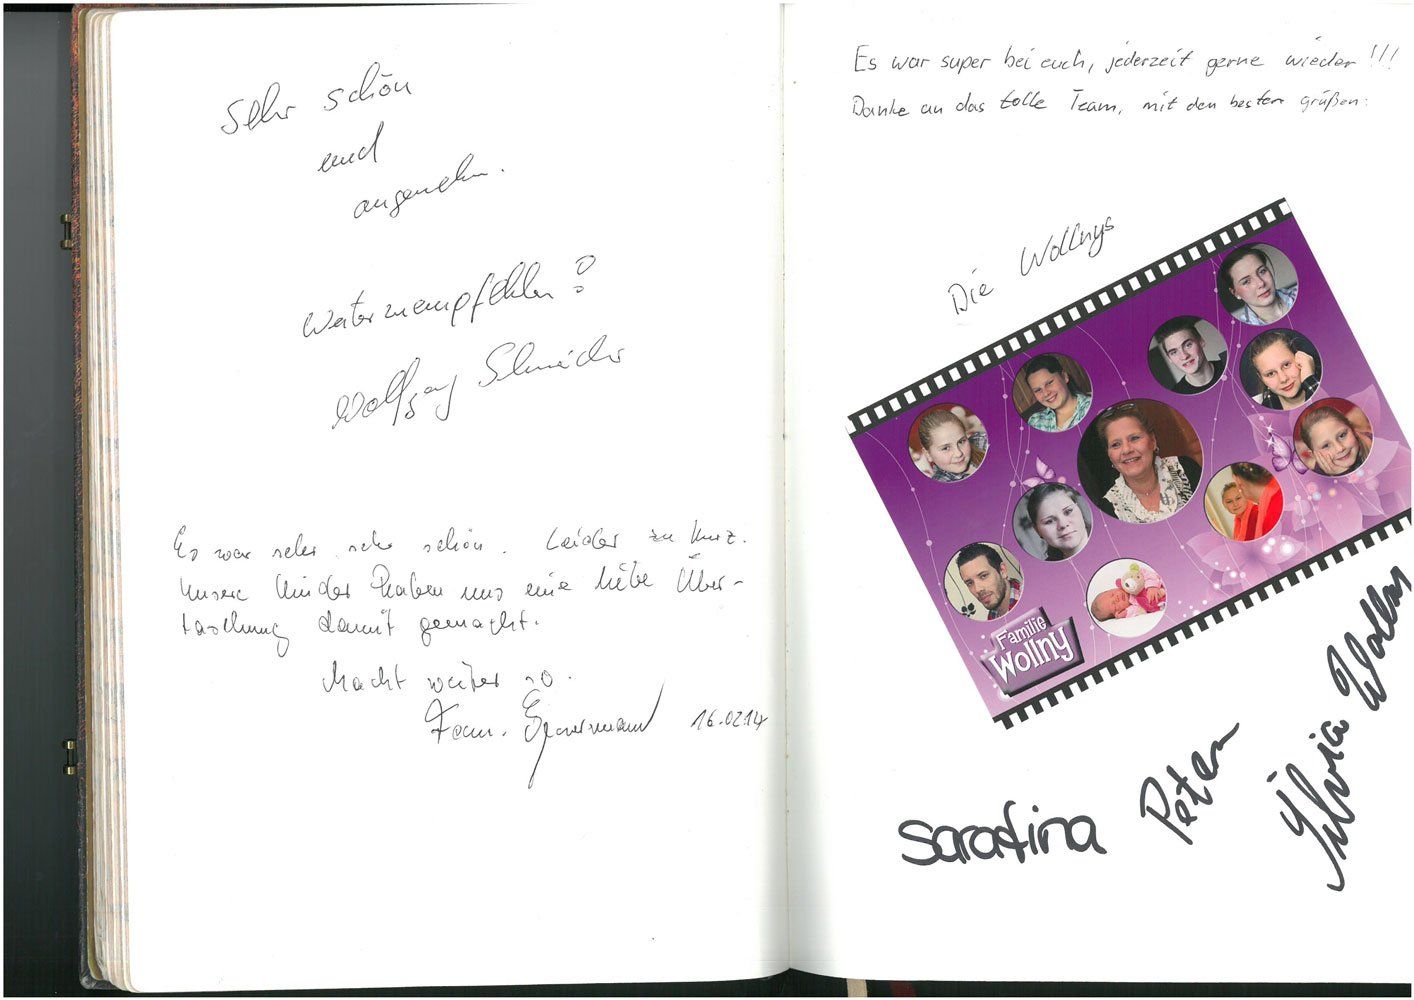 Sehr schön
und
angenehm.
Weiterzuempfehlen!
Wolfgang Schneider
Es war sehr, sehr schön. Leider zu kurz.
Unsere Kinder haben uns eine liebe Über-
raschung damit gemacht.
Macht weiter so.
Fam. 16.02.14
Es war super bei euch, jederzeit gerne wieder!!!
Danke an das tolle Team, mit den besten grüßen:
Die Wollnys
Familie
Wollny
Sarafina
Peter
Silvia Wollny